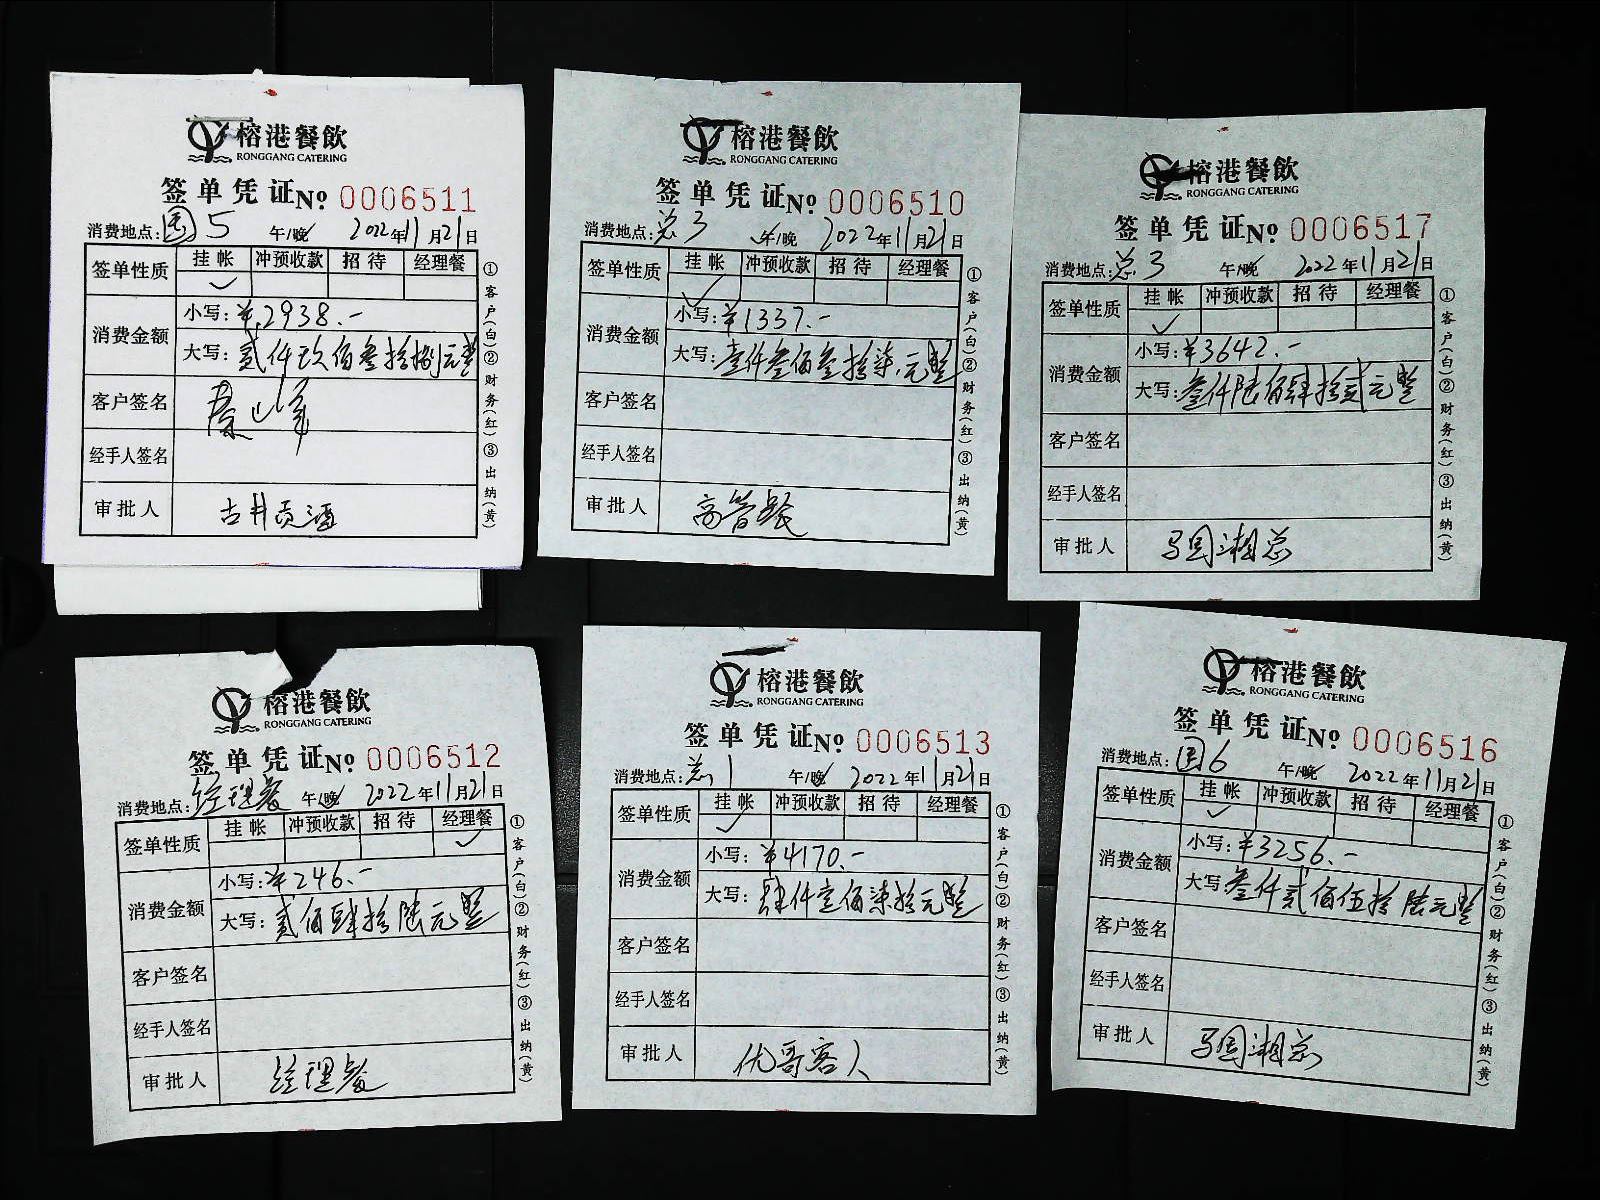 榕港餐飲
RONGGANG CATERING
签单凭证No 0006511
消费地点: 国5 午/晚 2022年11月21日
签单性质 挂帐 冲预收款 招待 经理餐
✓
消费金额 小写: ¥2938.-
大写: 贰仟玖佰叁拾捌元整
客户签名
经手人签名
审批人 古井贡酒
①客户(白)②财务(红)③出纳(黄)
榕港餐飲
RONGGANG CATERING
签单凭证No 0006510
消费地点: 总3 午/晚 2022年11月21日
签单性质 挂帐 冲预收款 招待 经理餐
✓
消费金额 小写: ¥1337.-
大写: 壹仟叁佰叁拾柒元整
客户签名
经手人签名
审批人 高管餐
①客户(白)②财务(红)③出纳(黄)
榕港餐飲
RONGGANG CATERING
签单凭证No 0006517
消费地点: 总3 午/晚 2022年11月21日
签单性质 挂帐 冲预收款 招待 经理餐
✓
消费金额 小写: ¥3642.-
大写: 叁仟陆佰肆拾贰元整
客户签名
经手人签名
审批人 马国湘总
①客户(白)②财务(红)③出纳(黄)
榕港餐飲
RONGGANG CATERING
签单凭证No 0006512
消费地点: 经理餐 午/晚 2022年11月21日
签单性质 挂帐 冲预收款 招待 经理餐
✓
消费金额 小写: ¥246.-
大写: 贰佰肆拾陆元整
客户签名
经手人签名
审批人 经理餐
①客户(白)②财务(红)③出纳(黄)
榕港餐飲
RONGGANG CATERING
签单凭证No 0006513
消费地点: 总1 午/晚 2022年11月21日
签单性质 挂帐 冲预收款 招待 经理餐
✓
消费金额 小写: ¥4170.-
大写: 肆仟壹佰柒拾元整
客户签名
经手人签名
审批人 优哥客人
①客户(白)②财务(红)③出纳(黄)
榕港餐飲
RONGGANG CATERING
签单凭证No 0006516
消费地点: 国6 午/晚 2022年11月21日
签单性质 挂帐 冲预收款 招待 经理餐
✓
消费金额 小写: ¥3256.-
大写: 叁仟贰佰伍拾陆元整
客户签名
经手人签名
审批人 马国湘总
①客户(白)②财务(红)③出纳(黄)